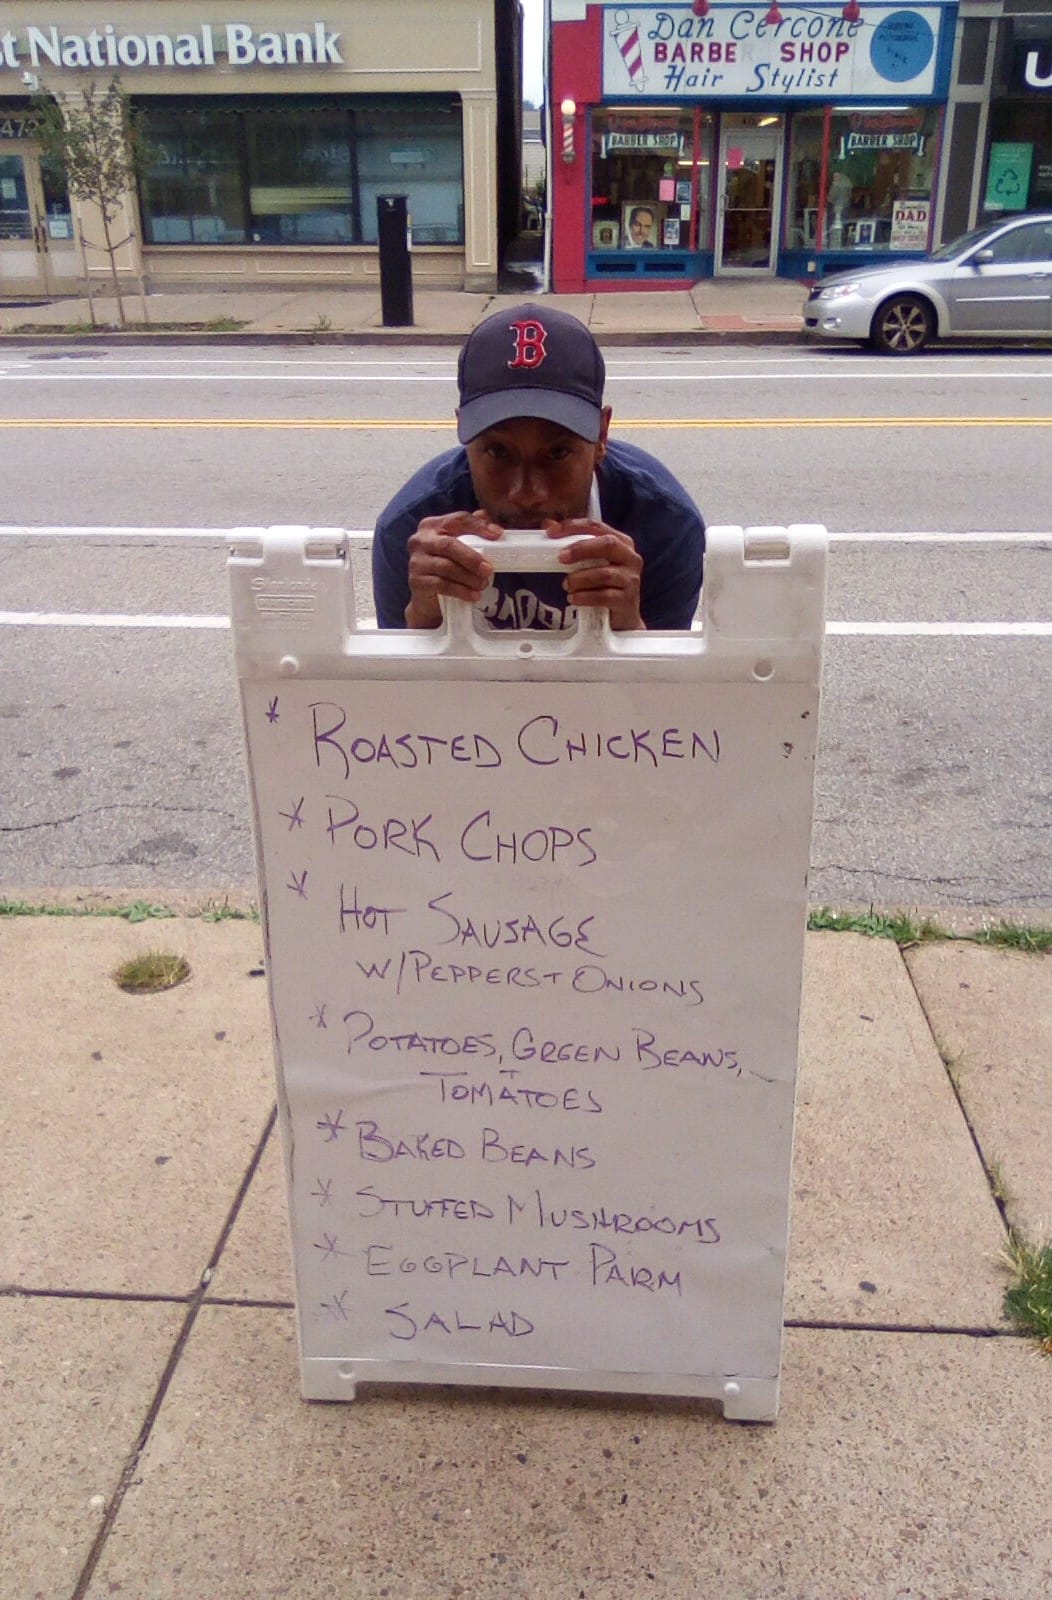 st National Bank
Dan Cercone
BARBER SHOP
Hair Stylist
BARBER SHOP
BARBER SHOP
DAD
U
B
* ROASTED CHICKEN
* PORK CHOPS
* HOT SAUSAGE
W/PEPPERS + ONIONS
* POTATOES, GREEN BEANS,
+ TOMATOES
* BAKED BEANS
* STUFFED MUSHROOMS
* EGGPLANT PARM
* SALAD